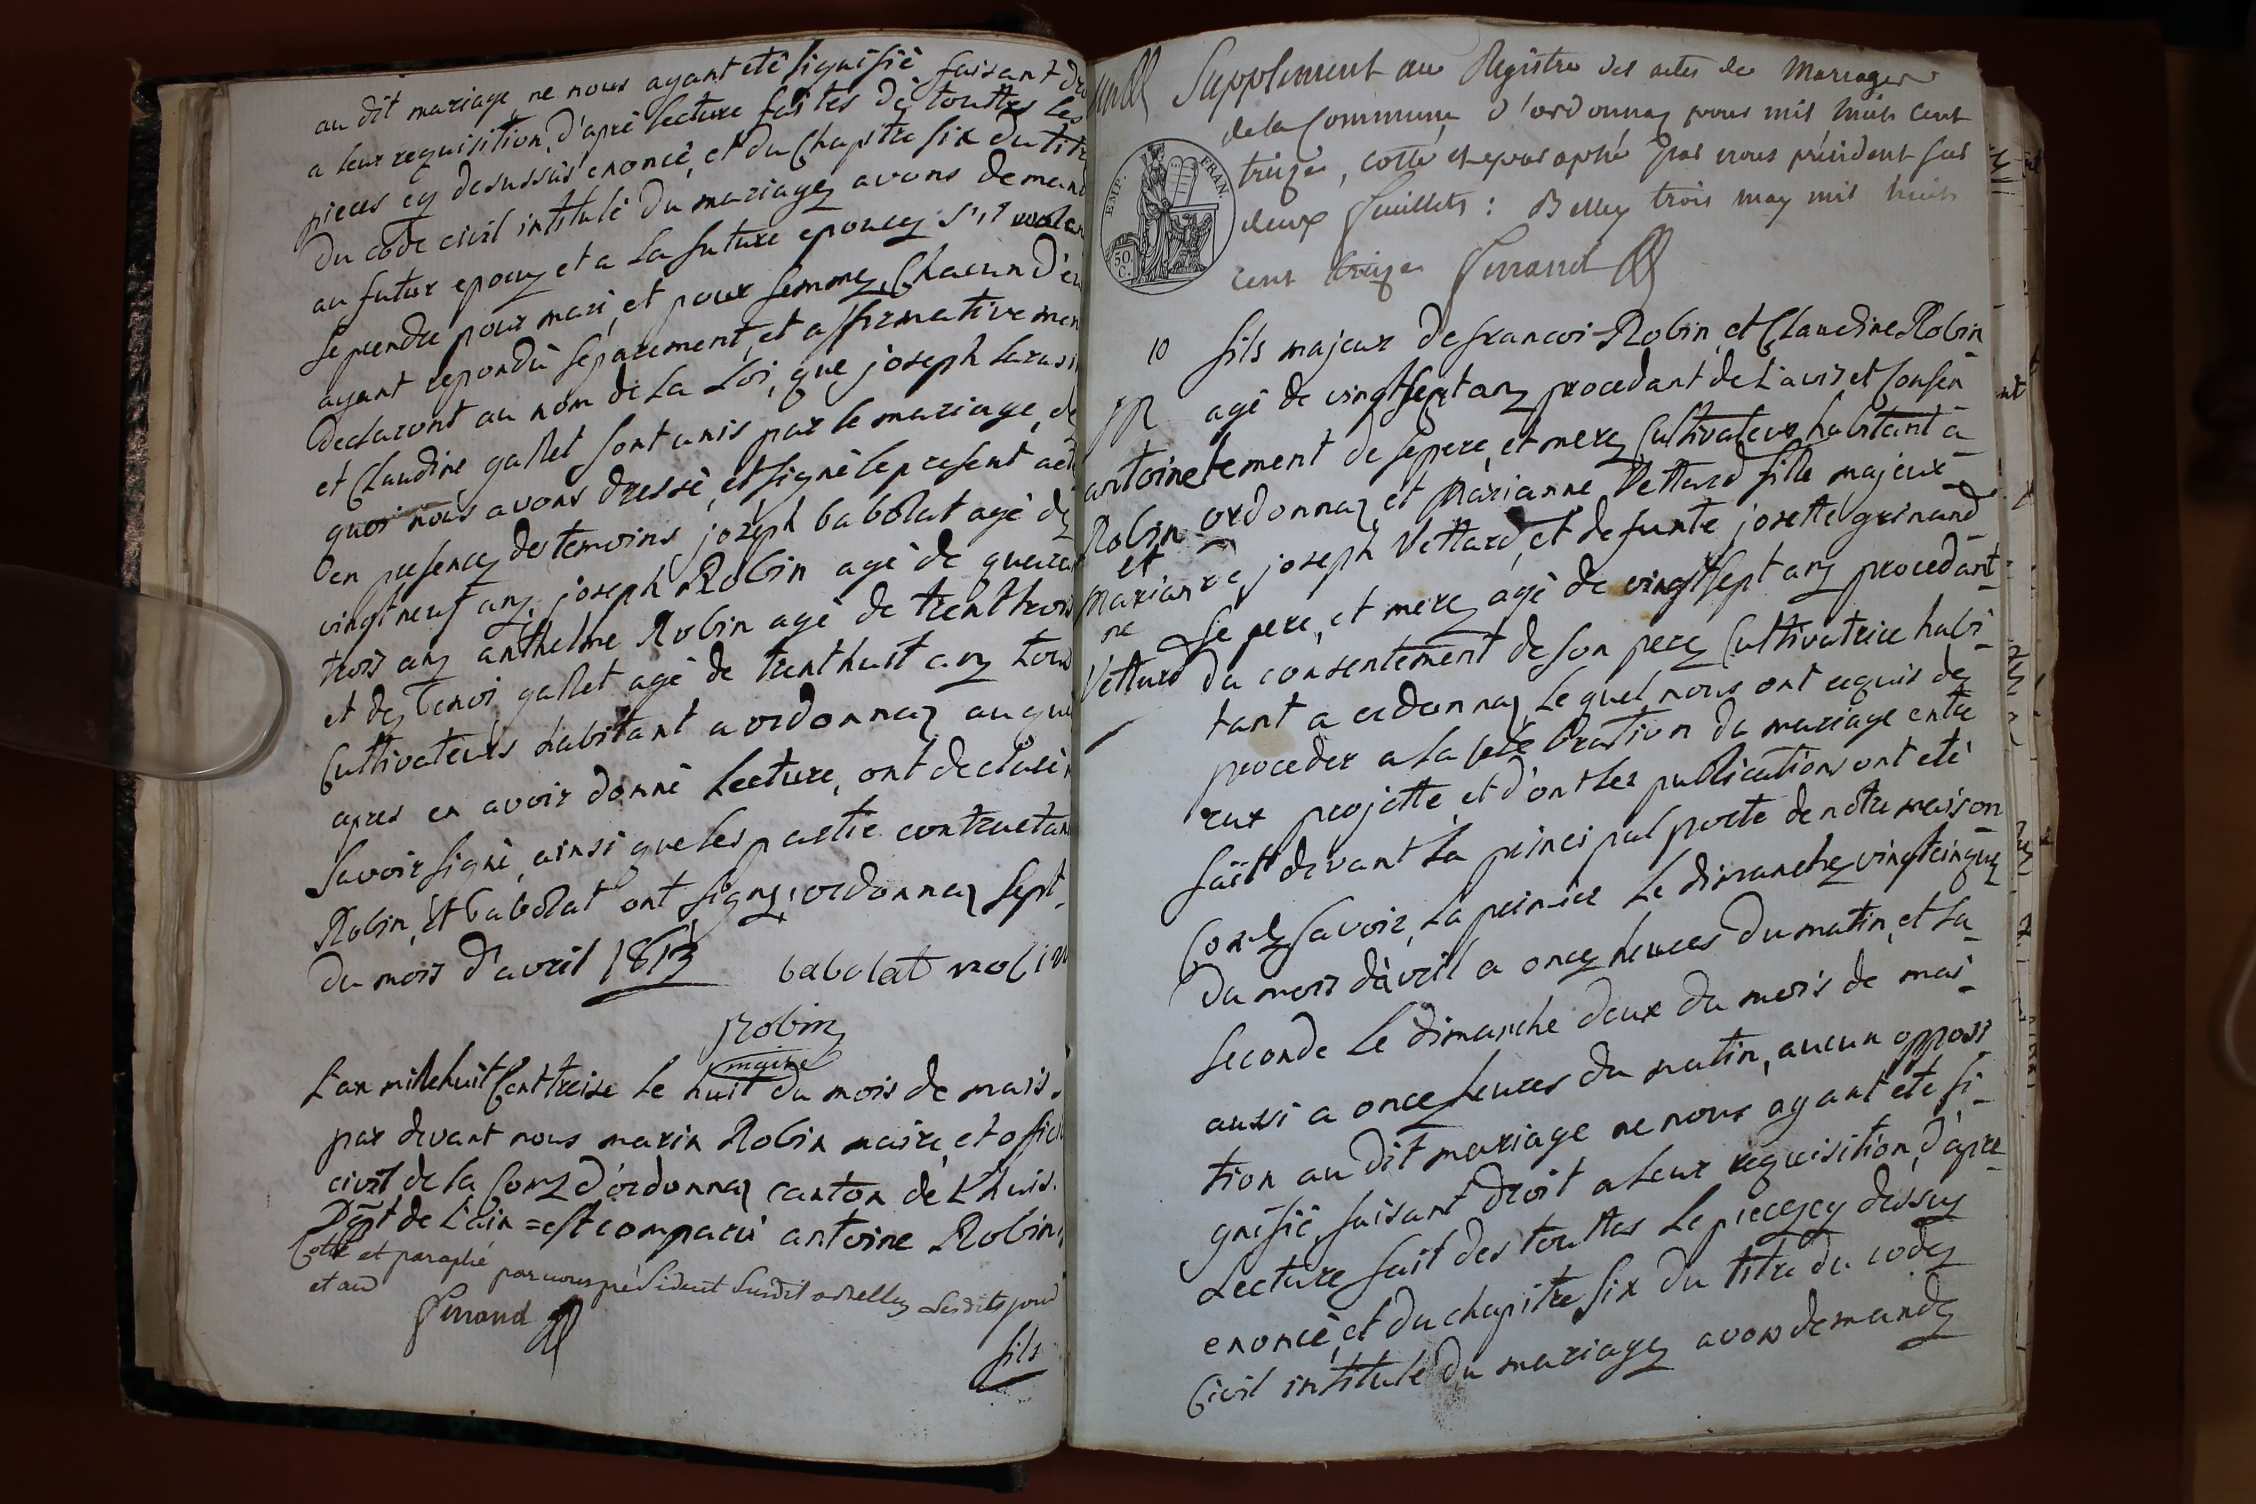 au dit mariage ne nous ayant eté signifiè faisant
a leur requisition, d'aprè lecture faites de touttes les
pieces cy desussus enoncè, et du Chapitre six du titre
du code civil intitulé du mariage avons demand
au futur epoux et a la future epouse s'il
se prendre pour mari et pour femme, Chacun d'eu
ayant repondu separement, et affirmativemen
declaront au nom de la Loi, que joseph
et Claudine gallet sont unis par le mariage, de
quoi nous avons dressè, et signè le present act
en presence des temoins joseph babolat agè de
vingt neuf ans, joseph Robin agè de quara
trois ans anthelme Robin agè de trent trois
et de gallet agè de trent huit ans tous
Cultivateurs habitant a ordonnaz auque
apres en avoir donnè Lecture, ont declarè
Savoir signè, ainsi que les partie contractan
Robin, et babolat ont signé, ordonnaz sept.
du mois d'avril 1813 babolat robin
Robin
maire
L'an mille huit Cent treise le huit du mois de mais.
par devant nous marin Robin maire, et offici
civil de la Com d'ordonnaz canton de L'huis.
Dept de L'ain = est comparu antoine Robin
Cotté et paraphé par nous président Susdit a Belley Lesdits jour
et an
Ferrand
fils
Supplément au Registre des actes de Mariages
de la Commune d'ordonnaz pour mil huit cent
treize, cotté et paraphé par nous président sur
deux feuillets : Belley trois may mil huit
cent treize Ferrand
EMP. FRAN.
50 C.
10
antoine
Robin
et
Marian
ne
Vettard
fils majeur de francoi Robin, et Claudine Robin
agè de vingt sept ans procedant de L'avis et Consen
tement de se pere, et mere, Cultivateur habitant a
ordonnaz, et Marianne Vettard fille majeur
de joseph Vettard, et defunte josette grinand
se pere, et mere, agè de vingt sept ans procedant
du consentement de son pere, Cultivatrice habi-
tant a ordonnaz, Le quel nous ont requis de
proceder a la celebration du mariage entre
eux projettè, et d'ont les publications ont etè
fait devant la principal porte de notre maison
Com savoir, la premier Le dimanche vingt cinque
du mois d'avril a once heures du matin, et la
seconde Le dimanche deux du mois de mai
aussi a once heures du matin, aucun opposi
tion au dit mariage ne nous ayant eté si-
gnifiè, faisant droit a leur requisition, d'apre
Lecture fait des touttes Le piece cy dessus
enoncè, et du chapitre six du titre du code
Civil intitulé du mariage avons demandé